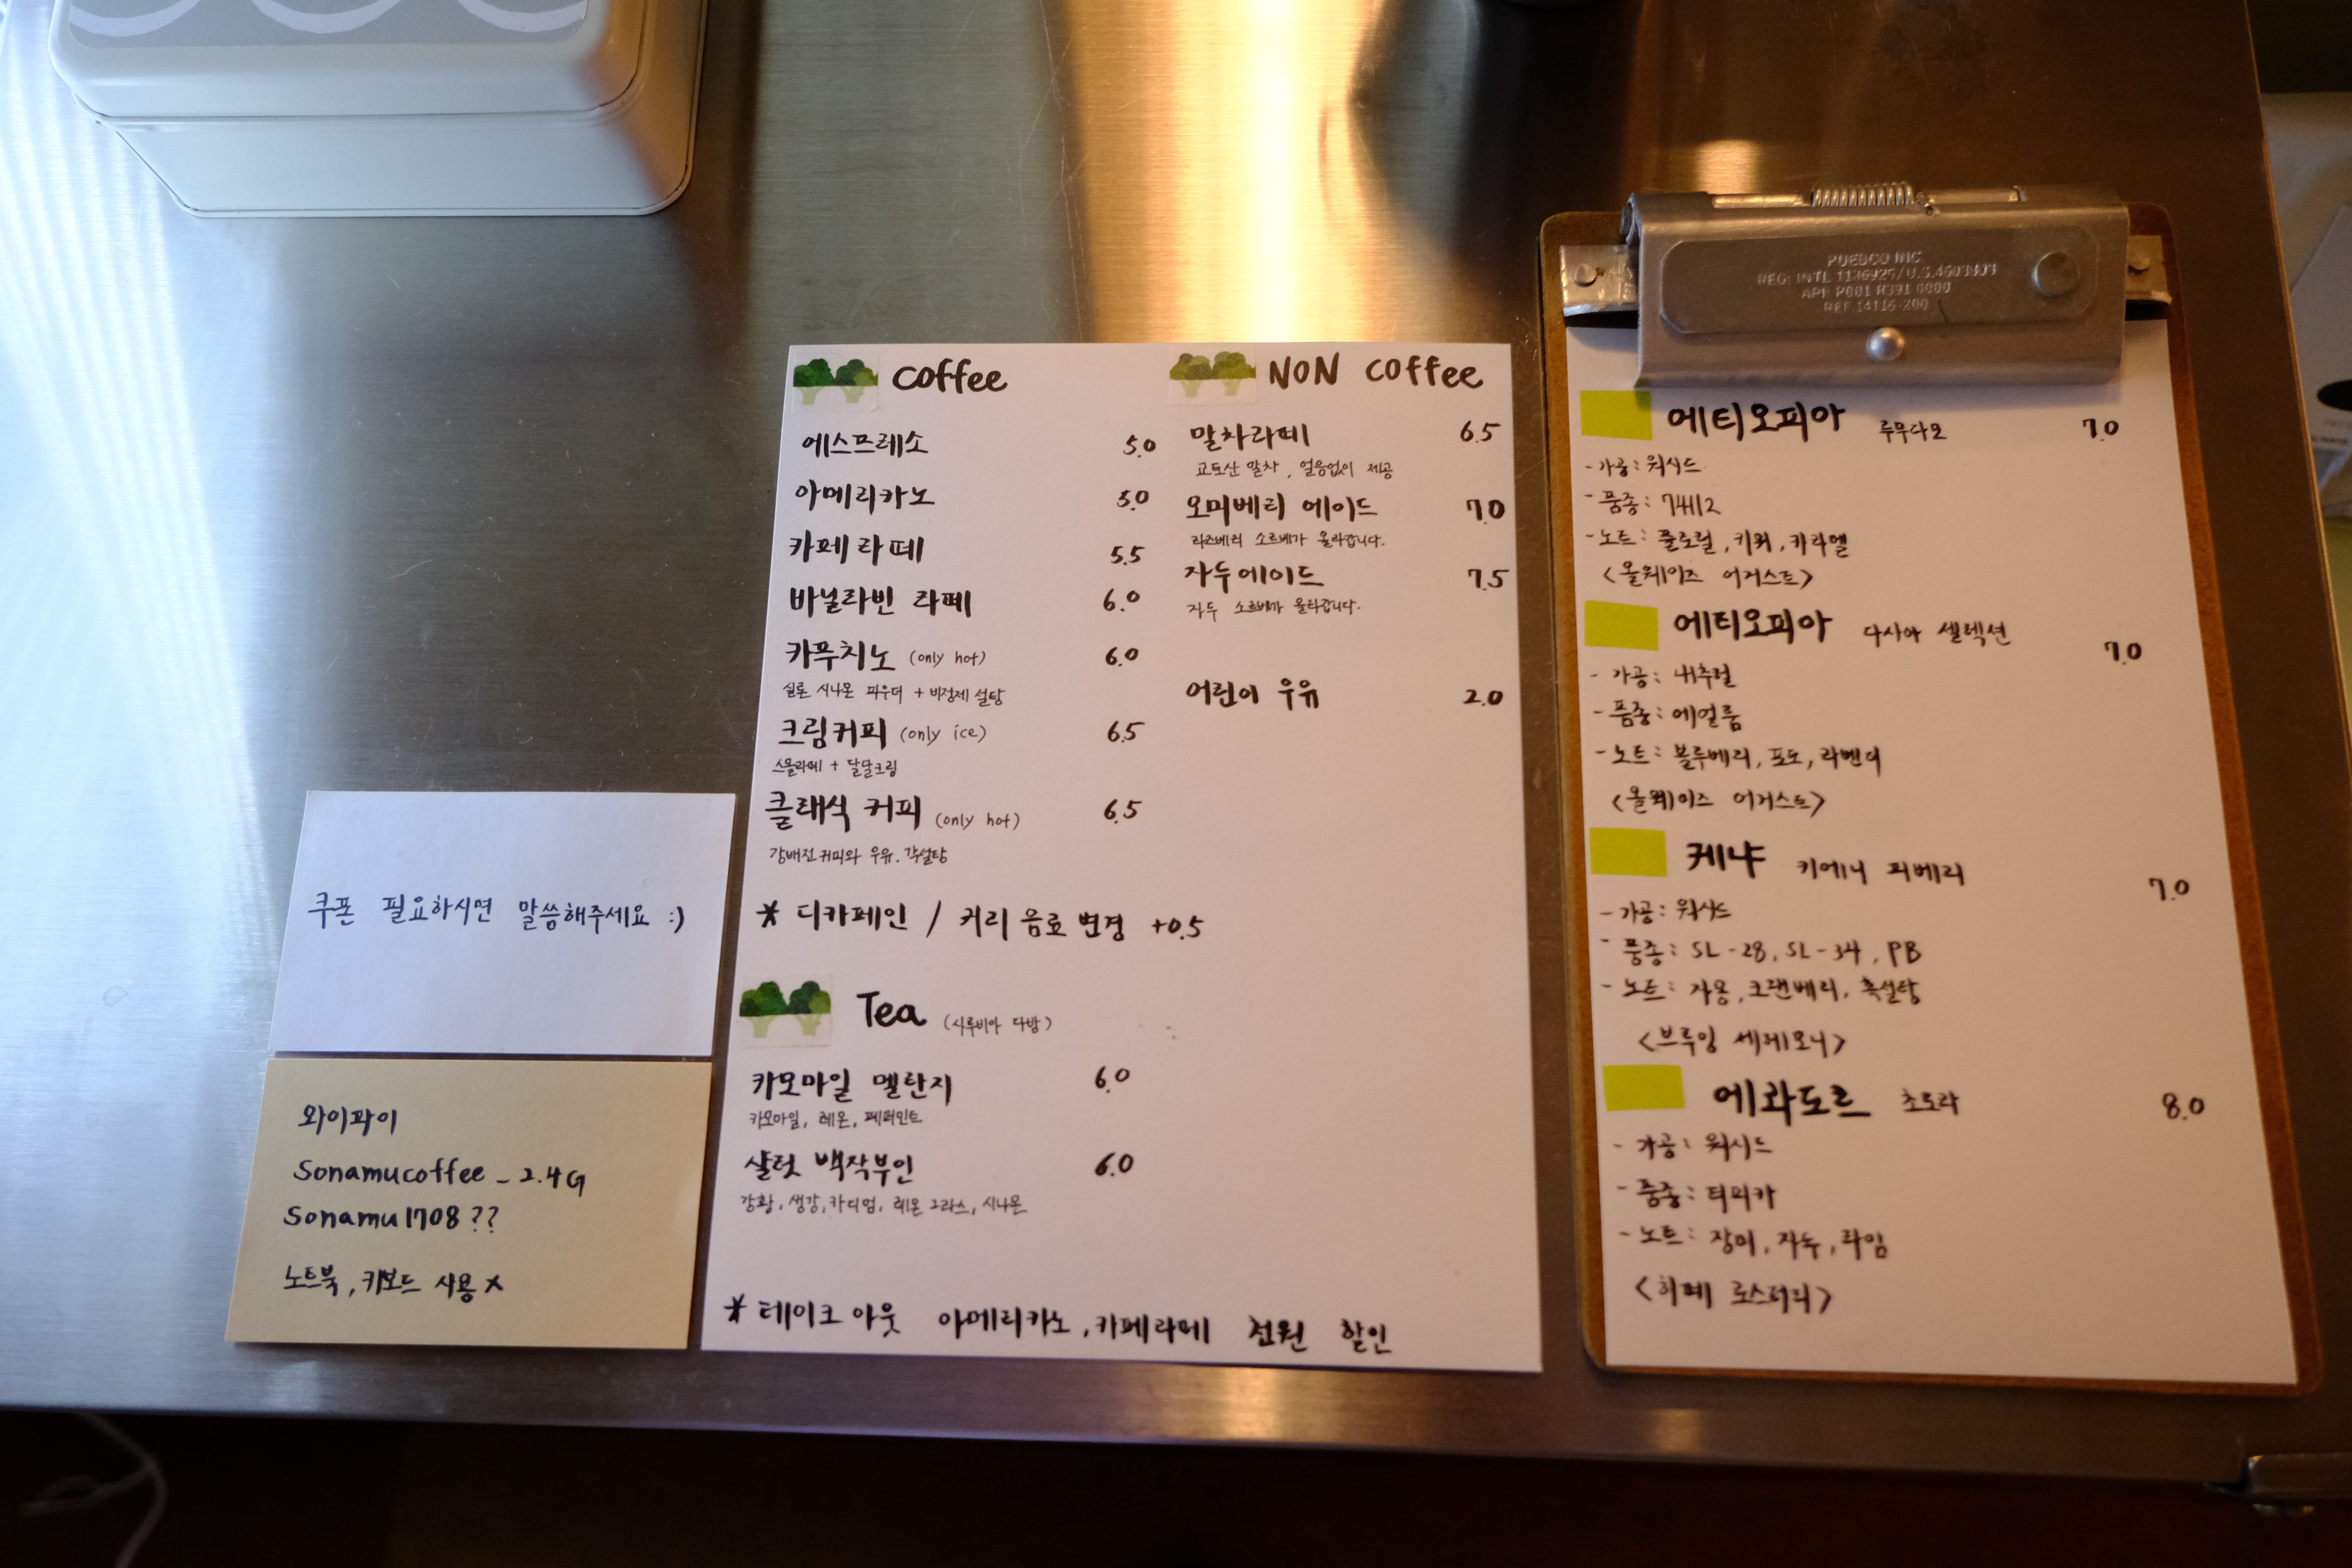 쿠폰 필요하시면 말씀해주세요 :)
와이파이
Sonamucoffee_2.4G
Sonamu1708??
노트북, 키보드 사용 x
Coffee
에스프레소 5.0
아메리카노 5.0
카페라떼 5.5
바닐라빈 라떼 6.0
카푸치노 (only hot) 6.0
실론 시나몬 파우더 + 비정제 설탕
크림커피 (only ice) 6.5
스몰라떼 + 달달크림
클래식 커피 (only hot) 6.5
강배전 커피와 우유, 각설탕
* 디카페인 / 커리 음료 변경 +0.5
Tea (시루비아 다방)
카모마일 멜란지 6.0
카모마일, 레몬, 페퍼민트
샬럿 백작부인 6.0
강황, 생강, 카디멈, 레몬그라스, 시나몬
* 테이크 아웃 아메리카노, 카페라떼 천원 할인
NON Coffee
말차라떼 6.5
교토산 말차, 얼음없이 제공
오미베리 에이드 7.0
라즈베리 소르베가 올라갑니다.
자두에이드 7.5
자두 소르베가 올라갑니다.
어린이 우유 2.0
PUEBCO INC
에티오피아 루무다모 7.0
- 가공: 워시드
- 품종: 74112
- 노트: 플로럴, 키위, 카라멜
<올웨이즈 어거스트>
에티오피아 다사야 셀렉션 7.0
- 가공: 내추럴
- 품종: 에얼룸
- 노트: 블루베리, 포도, 라벤더
<올웨이즈 어거스트>
케냐 키에니 피베리 7.0
- 가공: 워시드
- 품종: SL-28, SL-34, PB
- 노트: 자몽, 크랜베리, 흑설탕
<브루잉 세레모니>
에콰도르 초로라 8.0
- 가공: 워시드
- 품종: 티피카
- 노트: 장미, 자두, 라임
<히떼 로스터리>